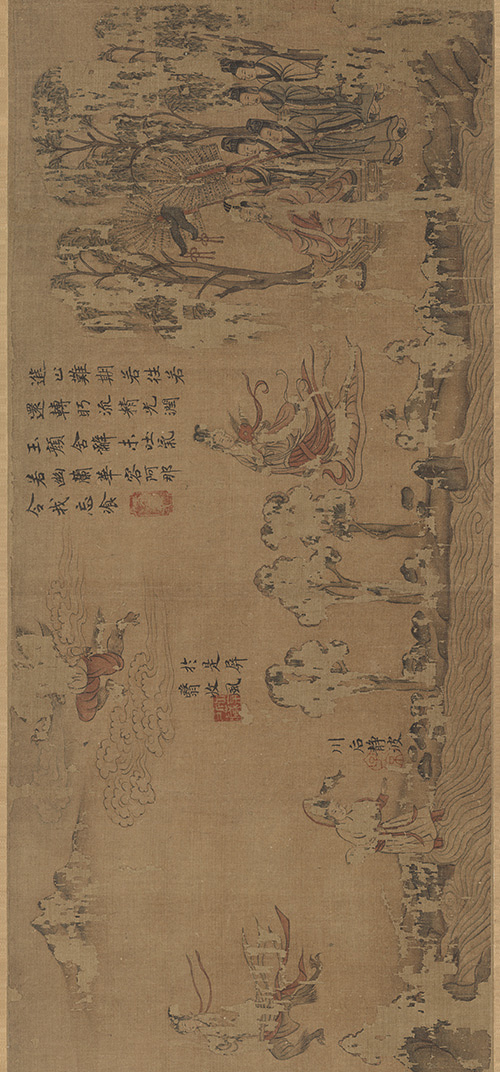 進止難期若往若
還轉眄流精光潤
玉顏含辭未吐氣
若幽蘭華容阿那
令我忘飡
於是屏
翳收風
川后靜波